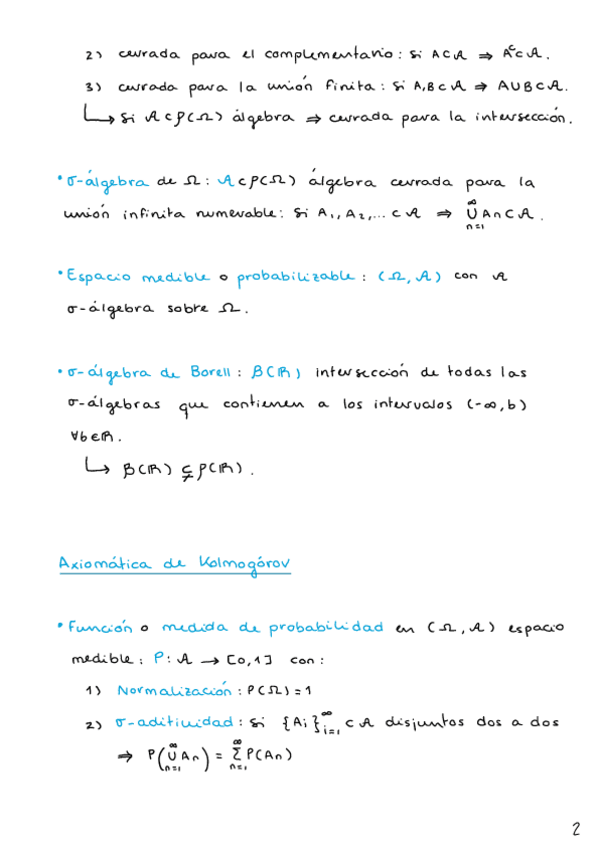 2) cerrada para el complementario: si A ⊂ 𝒜 ⇒ Aᶜ ⊂ 𝒜.
3) cerrada para la unión finita: si A,B ⊂ 𝒜 ⇒ A∪B ⊂ 𝒜.
↳ si 𝒜 ⊂ 𝒫(Ω) álgebra ⇒ cerrada para la intersección.
• σ-álgebra de Ω: 𝒜 ⊂ 𝒫(Ω) álgebra cerrada para la
unión infinita numerable: si A₁, A₂,... ⊂ 𝒜 ⇒ ⋃_{n=1}^{∞} An ⊂ 𝒜.
• Espacio medible o probabilizable: (Ω, 𝒜) con 𝒜
σ-álgebra sobre Ω.
• σ-álgebra de Borell: β(ℝ) intersección de todas las
σ-álgebras que contienen a los intervalos (-∞,b)
∀b∈ℝ.
↳ β(ℝ) ⊊ 𝒫(ℝ).
Axiomática de Kolmogórov
• Función o medida de probabilidad en (Ω, 𝒜) espacio
medible: P: 𝒜 → [0,1] con:
1) Normalización: P(Ω) = 1
2) σ-aditividad: si {Ai}_{i=1}^{∞} ⊂ 𝒜 disjuntos dos a dos
⇒ P(⋃_{n=1}^{∞} An) = ∑_{n=1}^{∞} P(An)
2